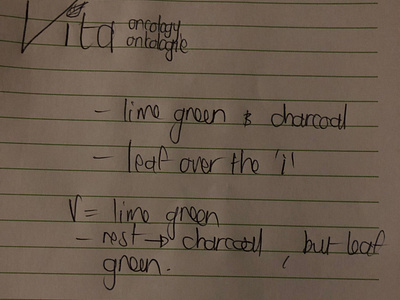 Vita oncology
onkologie
- lime green & charcoal
- leaf over the 'i'
V = lime green
- rest → charcoal, but leaf
green.